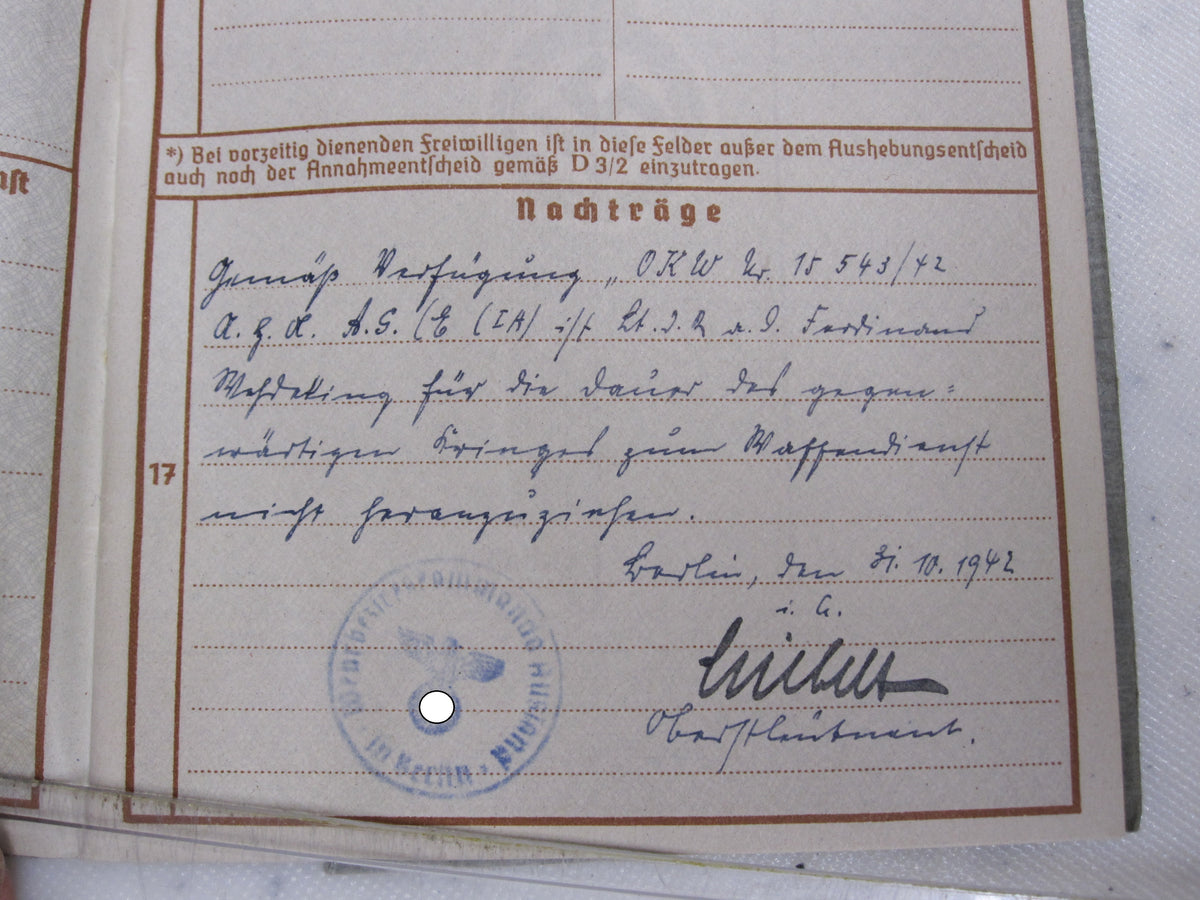 *) Bei vorzeitig dienenden Freiwilligen ist in diese Felder außer dem Aushebungsentscheid
auch noch der Annahmeentscheid gemäß D 3/2 einzutragen.
Nachträge
Gemäß Verfügung „ OKW Nr. 15 543/42
A. S. (E (IA) ist Lt. d. R a. D. Ferdinand
Wehdeking für die Dauer des gegen=
wärtigen Krieges zum Waffendienst
17
nicht heranzuziehen.
Berlin, den 31. 10. 1942
i. A.
Oberstleutnant.
Wehrbezirkskommando Ausland
in Berlin